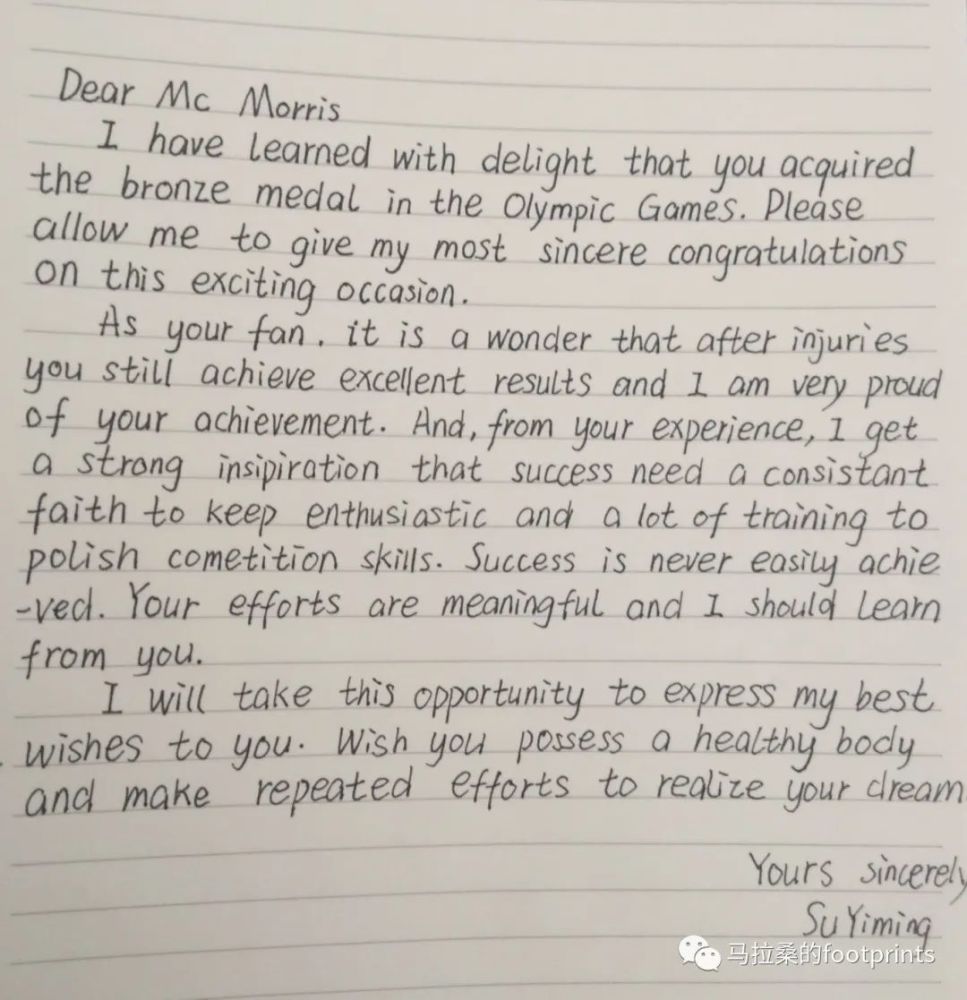 Dear Mc Morris
I have learned with delight that you acquired
the bronze medal in the Olympic Games. Please
allow me to give my most sincere congratulations
on this exciting occasion.
As your fan, it is a wonder that after injuries
you still achieve excellent results and I am very proud
of your achievement. And, from your experience, I get
a strong insipiration that success need a consistant
faith to keep enthusiastic and a lot of training to
polish cometition skills. Success is never easily achie
-ved. Your efforts are meaningful and I should learn
from you.
I will take this opportunity to express my best
wishes to you. Wish you possess a healthy body
and make repeated efforts to realize your dream
Yours sincerely
Su Yiming
马拉桑的footprints